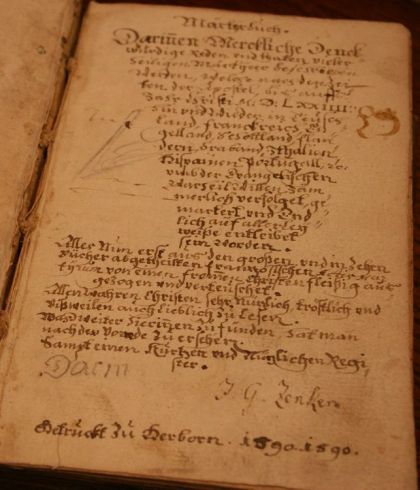 Marterbuch.
Darinnen Merckliche Denck
würdige Reden und thaten vieler
heiligen Märtyrer beschrieben
Werden, welche nach der Zei-
ten der Apostel, bis auffs
Jahr Christi M. D. LXXIIII
hin und wider in Teutsch
land, Franckreich, En
gelland, Schottland, Flan
dern, Braband, Italien
Hispanien Portugall, &c.
umb der Evangelischen
Warheit Willen Jäm
merlich verfolget, ge
martert und End
lich auf allerley
weise entleibet
sein worden.
Alles Nun erst aus den großen und in Zehen
Bücher abgetheilten französischen
von einem frommen Christen fleißig aus
gezogen und verteutschet.
Allen wahren Christen sehr Nützlich, tröstlich und
bißweilen auch lieblich zu Lesen.
Was weiter hierinen zu finden, hat man
nach der Vorrede zu ersehen.
Sampt einem Kurtzen und Nützlichen Regi-
ster.
Darin
J. G. Zenker
Gedruckt zu Herborn. 1590. 1590.